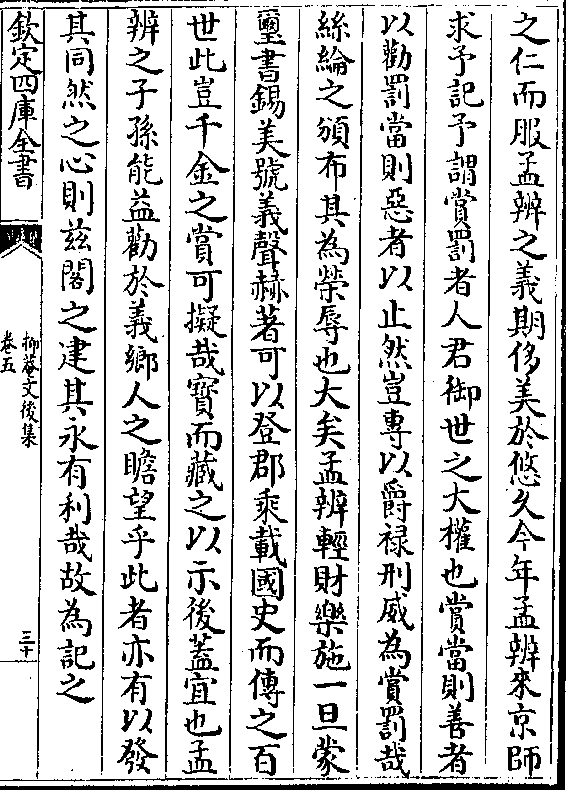 之仁而服孟辨之義期侈美於悠久今年孟辨來京師
求予記予謂賞罰者人君御世之大權也賞當則善者
以勸罰當則惡者以止然豈專以爵禄刑威為賞罰哉
絲綸之頒布其為榮辱也大矣孟辨輕財樂施一旦蒙
璽書錫美號義聲赫著可以登郡乘載國史而傳之百
世此豈千金之賞可擬哉寳而藏之以示後蓋宜也孟
辨之子孫能益勸於義鄉人之瞻望乎此者亦有以發
其同然之心則兹閣之建其永有利哉故為記之
欽定四庫全書
抑菴文後集
卷五
三十